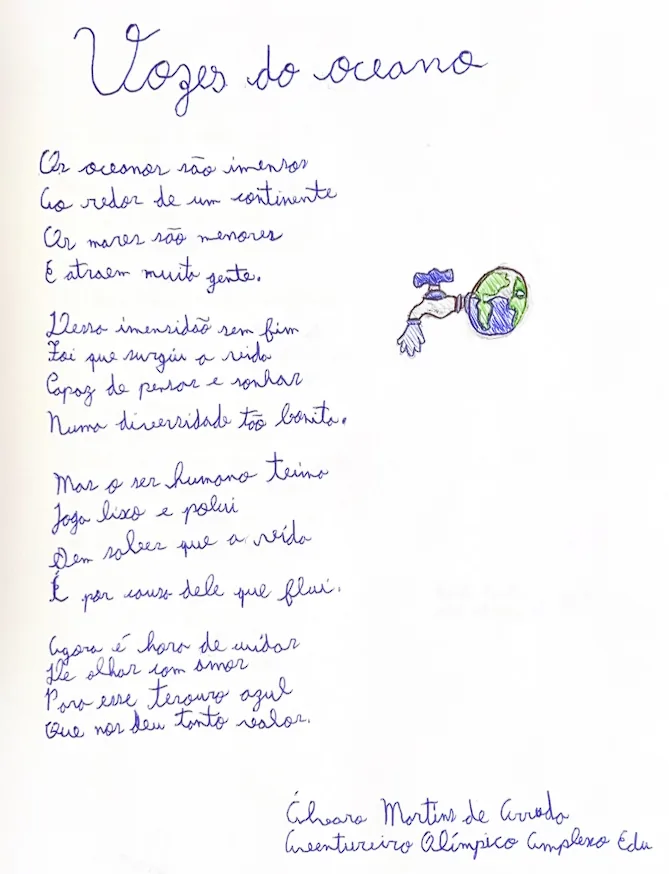 Vozes do oceano
Os oceanos são imensos
Ao redor de um continente
Os mares são menores
E atraem muita gente.
Dessa imensidão sem fim
Foi que surgiu a vida
Capaz de pensar e sonhar
Numa diversidade tão bonita.
Mas o ser humano teima
Joga lixo e polui
Sem saber que a vida
É por causa dele que flui.
Agora é hora de cuidar
De olhar com amor
Para esse tesouro azul
Que nos deu tanto valor.
Martins de Arruda
Aventureiro Olímpico Complexo Edu